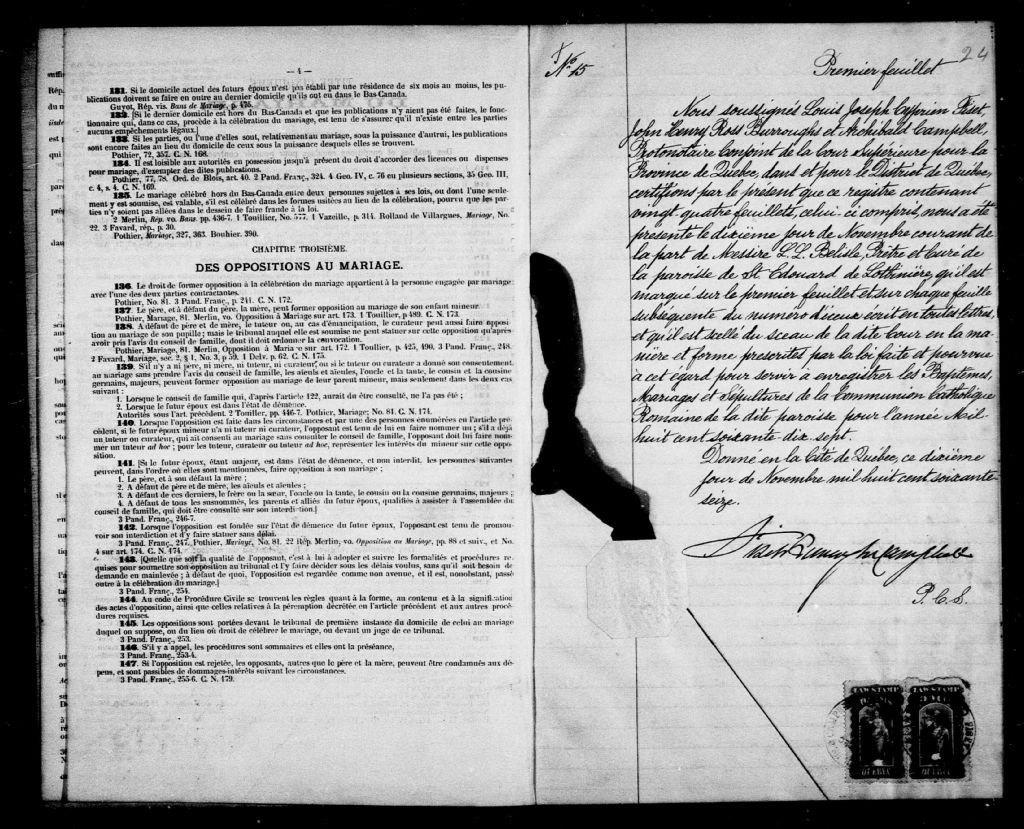 — 4 —
131. Si le domicile actuel des futurs époux n'est pas établi par une résidence de six mois au moins, les pu-
blications doivent se faire en outre au dernier domicile qu'ils ont eu dans le Bas-Canada.
Guyot, Rép. vis. Bans de Mariage, p. 475.
132. [Si le dernier domicile est hors du Bas-Canada et que les publications n'y aient pas été faites, le fonc-
tionnaire qui, dans ce cas, procède à la célébration du mariage, est tenu de s'assurer qu'il n'existe entre les parties
aucuns empêchements légaux.]
133. Si les parties, ou l'une d'elles sont, relativement au mariage, sous la puissance d'autrui, les publications
sont encore faites au lieu du domicile de ceux sous la puissance desquels elles se trouvent.
Pothier, 72, 357. C. N. 168.
134. Il est loisible aux autorités en possession jusqu'à présent du droit d'accorder des licences ou dispenses
pour mariage, d'exempter des dites publications.
Pothier, 77, 78. Ord. de Blois, art. 40. 2 Pand. Franç., 324. 4 Geo. IV, c. 76 en plusieurs sections, 35 Geo. III,
c. 4, s. 4. C. N. 169.
135. Le mariage célébré hors du Bas-Canada entre deux personnes sujettes à ses lois, ou dont l'une seule-
ment y est soumise, est valable, s'il est célébré dans les formes usitées au lieu de la célébration, pourvu que les par-
ties n'y soient pas allées dans le dessein de faire fraude à la loi.
2 Merlin, Rép. vo. Bans pp. 436-7. 1 Touillier, No. 577. 1 Vazeille, p. 314. Rolland de Villargues, Mariage, No.
22. 3 Favard, rép., p. 30.
Pothier, Mariage, 327, 363. Bouhier. 390.
CHAPITRE TROISIÈME.
DES OPPOSITIONS AU MARIAGE.
136. Le droit de former opposition à la célébration du mariage appartient à la personne engagée par mariage
avec l'une des deux parties contractantes.
Pothier, No. 81. 3 Pand. Franç., p. 241. C. N. 172.
137. Le père, et à défaut du père, la mère, peut former opposition au mariage de son enfant mineur.
Pothier, Mariage, 81. Merlin, vo. Opposition à Mariage sur art. 173. 1 Touillier, p 489. C. N. 173.
138. A défaut de père et de mère, le tuteur ou, au cas d'émancipation, le curateur peut aussi faire opposi-
tion au mariage de son pupille; mais le tribunal auquel elle est soumise ne peut statuer sur cette opposition qu'après
avoir pris l'avis du conseil de famille, dont il doit ordonner la convocation.
Pothier, Mariage, 81. Merlin, Opposition à Mariage sur art. 172. 1 Touillier, p. 425, 490. 3 Pand. Franç., 248.
2 Favard, Mariage, sec. 2, § 1, No. 3, p 59. 1 Delv. p. 62. C. N. 175.
139. S'il n'y a ni père, ni mère, ni tuteur, ni curateur, ou si le tuteur ou curateur a donné son consentement
au mariage sans prendre l'avis du conseil de famille, les aïeuls et aïeules, l'oncle et la tante, le cousin et la cousine
germains, majeurs, peuvent former opposition au mariage de leur parent mineur, mais seulement dans les deux cas
suivant :
1. Lorsque le conseil de famille qui, d'après l'article 122, aurait du être consulté, ne l'a pas été ;
2. Lorsque le futur époux est dans l'état de démence.
Autorités sous l'art. précédent. 2 Touiller, pp. 446-7. Pothier, Mariage; No. 81. C N. 174.
140. Lorsque l'opposition est faite dans les circonstances et par une des personnes énoncées en l'article pré-
cédent, si le futur époux mineur n'a ni tuteur ni curateur, l'opposant est tenu de lui en faire nommer un ; s'il a déjà
un tuteur ou curateur, qui ait consenti au mariage sans consulter le conseil de famille, l'opposant doit lui faire nom-
mer un tuteur ad hoc ; pour les tuteur, curateur ou tuteur ad hoc, représenter les intérêts du mineur sur cette oppo-
sition.
141. [Si le futur époux, étant majeur, est dans l'état de démence, et non interdit, les personnes suivantes
peuvent, dans l'ordre où elles sont mentionnées, faire opposition à son mariage ;
1. Le père, et à son défaut la mère ;
2. A défaut de père et de mère, les aïeuls et aïeules ;
3. A défaut de ces derniers, le frère ou la sœur, l'oncle ou la tante, le cousin ou la cousine germains, majeurs ;
4. A défaut de tous les susnommés, les parents et alliés du futur époux, qualifiés à assister à l'assemblée du
conseil de famille, qui doit être consulté sur son interdiction.]
3 Pand. Franç., 246-7.
142. Lorsque l'opposition est fondée sur l'état de démence du futur époux, l'opposant est tenu de promou-
voir son interdiction et d'y faire statuer sans délai.
3 Pand. Franç., 247, Pothier, Mariage, No. 81. 22 Rép Merlin, vo. Opposition au Mariage, pp. 88 et suiv., et No.
4 sur art 174. C. N. 174.
143. [Quelle que soit la qualité de l'opposant, c'est à lui à adopter et suivre les formalités et procédures re-
quises pour soumettre son opposition au tribunal et l'y faire décider sous les délais voulus, sans qu'il soit besoin de
demande en mainlevée ; à défaut de quoi, l'opposition est regardée comme non avenue, et il est, nonobstant, passé
outre à la célébration du mariage.]
3 Pand. Franç., 254.
144. Au code de Procédure Civile se trouvent les règles quant à la forme, au contenu et à la signification
des actes d'opposition, ainsi que celles relatives à la péremption décrétée en l'article précédent et aux autres procé-
dures requises.
145. Les oppositions sont portées devant le tribunal de première instance du domicile de celui au mariage
duquel on suppose, ou du lieu où doit de célébrer le mariage, ou devant un juge de ce tribunal.
3 Pand. Franç., 253.
146. S'il y a appel, les procédures sont sommaires et elles ont la préséance,
3 Pand. Franç., 253-4.
147. Si l'opposition est rejetée, les opposants, autres que le père et la mère, peuvent être condamnés aux dé-
pens, et sont passibles de dommages-intérêts suivant les circonstances.
3 Pand. Franç., 255-6. C. N. 179.
No 15
24
Premier feuillet
Nous soussignés Louis Joseph Cyprien Fiset,
John Henry Ross Burroughs et Archibald Campbell,
Protonotaire Conjoint de la Cour Supérieure pour la
Province de Quebec, dans et pour le District de Quebec,
certifions par le présent que ce registre contenant
vingt quatre feuillets, celui-ce compris, nous a été
présenté le dixième jour de Novembre courant de
la part de Messire L. L. Belisle, Prêtre et Curé de
la paroisse de St. Edouard de Lotbinière, qu'il est
marqué sur le premier feuillet et sur chaque feuille
subséquente du numéro d'iceux ecrit en toutes lettres,
et qu'il est scellé du sceau de la dite Cour en la ma-
nière et forme prescrites par la loi faite et pourvue
à cet égard pour servir à enregistrer les Baptêmes,
Mariages et Sépultures de la Communion Catholique
Romaine de la dite paroisse pour l'année Mil
huit cent soixante dix sept.
Donné en la Cité de Québec, ce dixième
jour de Novembre mil huit cent soixante-
seize.
P. C. S.
LAW STAMP
QUEBEC
LAW STAMP
QUEBEC